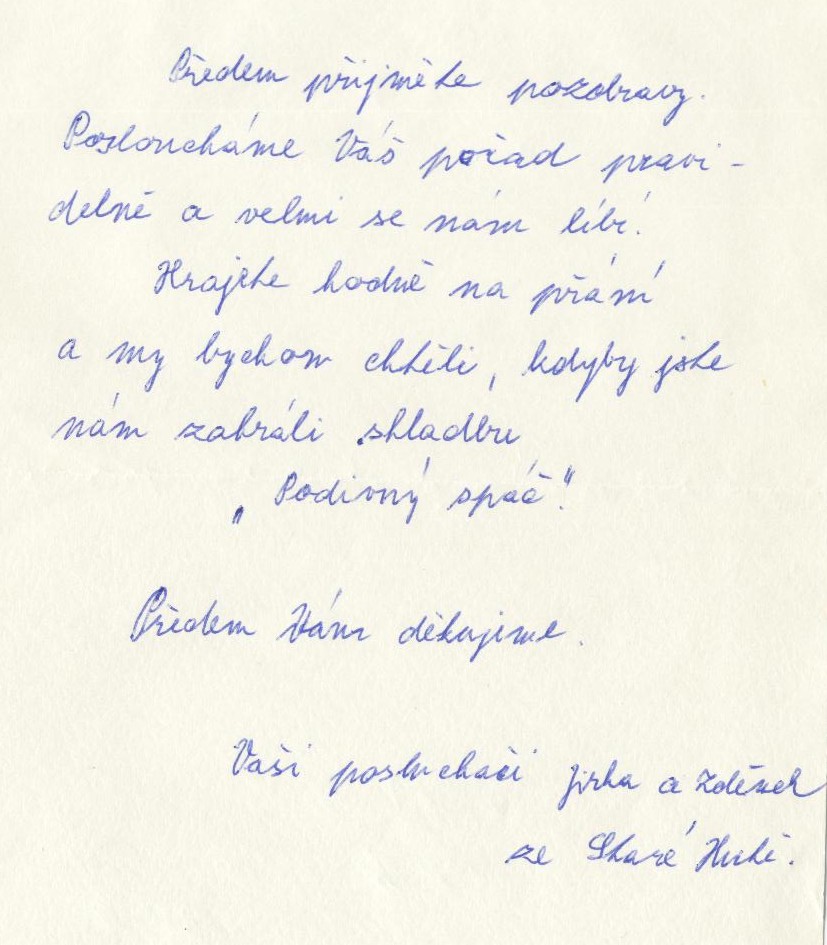 Předem přijměte pozdravy.
Posloucháme Váš pořad pravi-
delně a velmi se nám líbí.
Hrajete hodně na přání
a my bychom chtěli, kdyby jste
nám zahráli skladbu
„Podivný spáč".
Předem Vám děkujeme.
Vaši posluchači Jirka a Zdeněk
ze Staré Hutě.